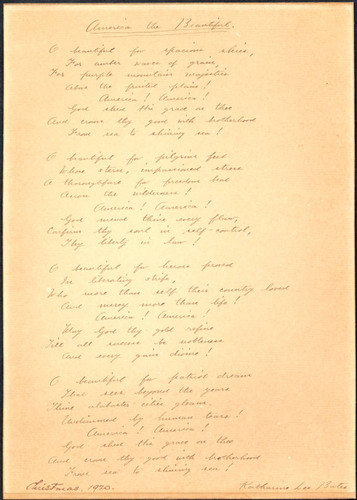 America the Beautiful.
O beautiful for spacious skies,
For amber waves of grain,
For purple mountain majesties
Above the fruited plain!
America! America!
God shed His grace on thee
And crown thy good with brotherhood
From sea to shining sea!
O beautiful for pilgrim feet
Whose stern, impassioned stress
A thoroughfare for freedom beat
Across the wilderness!
America! America!
God mend thine every flaw,
Confirm thy soul in self-control,
Thy liberty in law!
O beautiful for heroes proved
In liberating strife,
Who more than self their country loved
And mercy more than life!
America! America!
May God thy gold refine
Till all success be nobleness
And every gain divine!
O beautiful for patriot dream
That sees beyond the years
Thine alabaster cities gleam
Undimmed by human tears!
America! America!
God shed His grace on thee
And crown thy good with brotherhood
From sea to shining sea!
Christmas 1920. Katharine Lee Bates